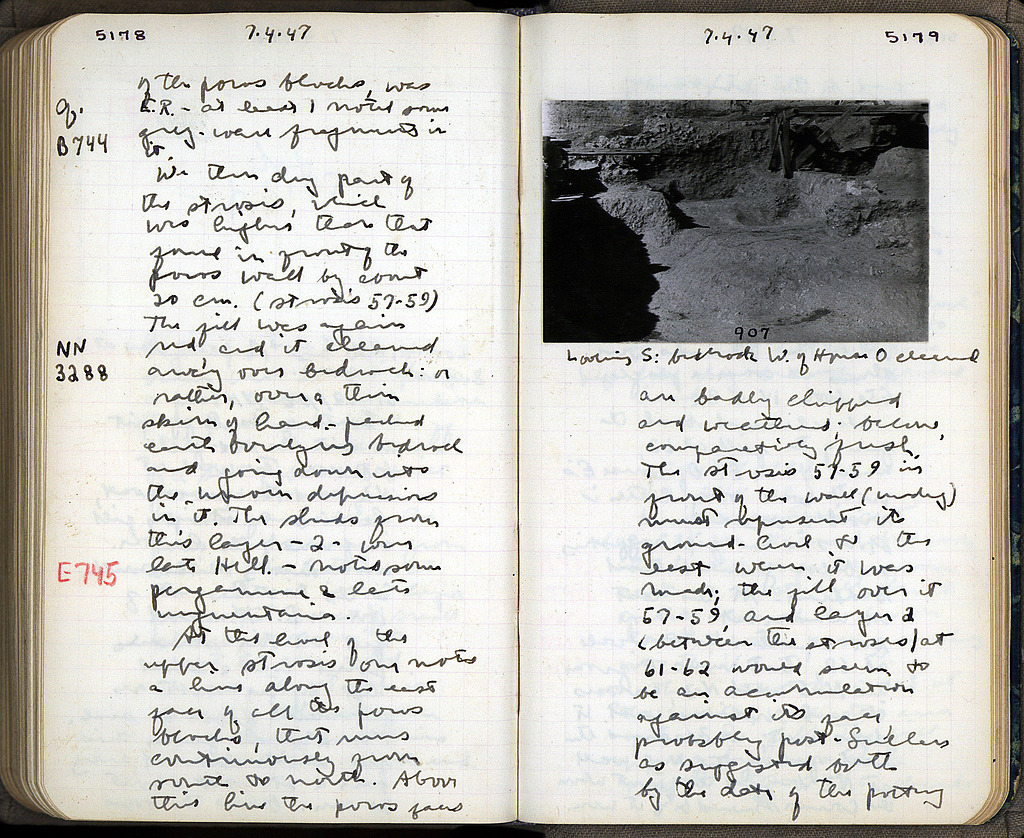 5178
7.4.47
of the poros blocks, was
E.R. - at least I noted some
grey-ware fragments in
it.
B744
We then dug part of
the strosis, which
was higher than that
found in front of the
poros wall by about
20 cm. (strosis 57-59)
The fill was again
red, and it cleaned
away over bedrock: or
rather, over a thin
skin of hard-packed
earth overlying bedrock
and going down into
the uneven depressions
in it. The sherds from
this layer - 2 - were
late Hell. - noted some
pergamene & late
unguentaria.
NN
3288
E 745
At the level of the
upper strosis one notes
a line along the east
face of all the poros
blocks, that runs
continuously from
south to north. Above
this line the poros faces
7.4.47
5179
907
Looking S: bedrock W. of House O cleared
are badly chipped
and weathered; below,
comparatively fresh.
The strosis 57-59 in
front of the wall
must represent its
ground-level to the
east when it was
made; the fill over it
57-59, and layer 2
(between the stroses) at
61-62 would seem to
be an accumulation
against its face,
probably post-Sullan
as suggested both
by the date of the pottery